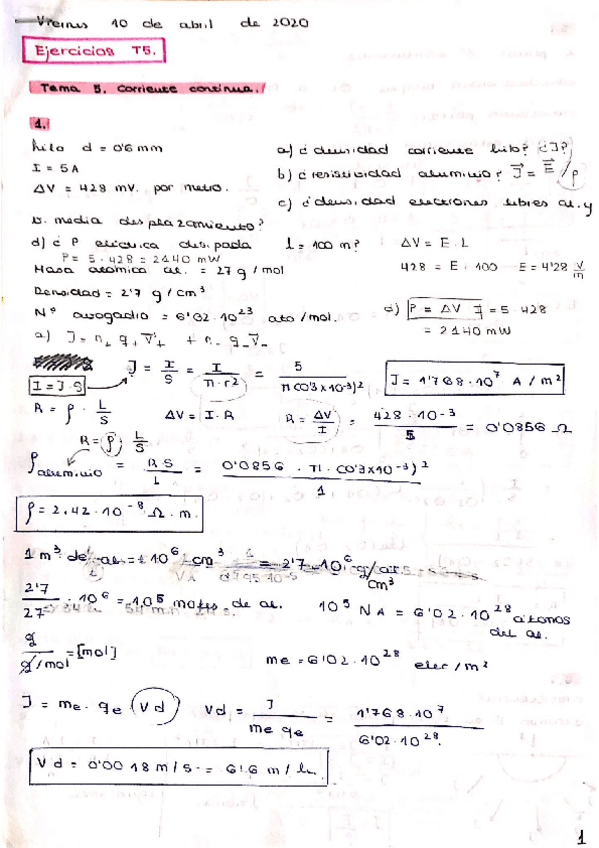 Viernes 10 de abril de 2020
Ejercicios T5.
Tema 5. Corriente continua.
1.
hilo d = 0'6 mm
I = 5A
ΔV = 428 mV. por metro.
a) ¿densidad corriente hilo? ¿J?
b) ¿resistividad aluminio? J = E/ρ
c) ¿densidad electrones libres al. y
v. media desplazamiento?
d) ¿P eléctrica disipada l = 100 m? ΔV = E.L
P = 5 · 428 = 2140 mW
428 = E · 100 E = 4'28 V/m
Masa atómica al. = 27 g/mol
Densidad = 2'7 g/cm³
Nº avogadro = 6'02 · 10²³ ato/mol.
d) P = ΔV I = 5 · 428
= 2140 mW
a) J = n₊ q₊ V₊ + n₋ q₋ V₋
I = J · S
J = I/S = I/π·r² = 5/π(0'3×10⁻³)²
J = 1'768 · 10⁷ A/m²
R = ρ · L/S ΔV = I · R R = ΔV/I = 428 · 10⁻³/5 = 0'0856 Ω
R = ρ L/S
ρ aluminio = R S/L = 0'0856 · π · (0'3×10⁻³)²/1
ρ = 2.42 · 10⁻⁸ Ω · m.
1 m³ de al. = 10⁶ cm³ = 2'7 · 10⁶ g/cm³
2'7/27 · 10⁶ = 10⁵ moles de al. 10⁵ NA = 6'02 · 10²⁸ átomos del al.
g/g/mol = [mol]
me = 6'02 · 10²⁸ elec/m²
J = me · qe Vd Vd = J/me qe = 1'768 · 10⁷/6'02 · 10²⁸.
Vd = 0'0018 m/s = 6'6 m/h.
1